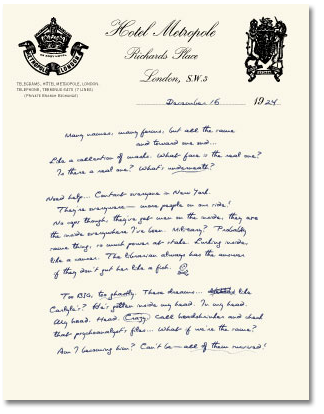 Hotel Metropole
Richards Place
London, S.W.3
METROPOLE LONDON
TELEGRAMS, HOTEL METROPOLE, LONDON.
TELEPHONE, TERMINUS GATE (7 LINES)
(PRIVATE BRANCH EXCHANGE)
December 16 1924
Many names, many forms, but all the same
and toward one end...
Like a collection of masks. What face is the real one?
Is there a real one? What's underneath?
Need help... Contact everyone in New York.
They're everywhere — more people on our side!
No ops though, they've got men on the inside, they are
the inside everywhere I've been. Military? Probably
same thing, so much power at stake. Lurking inside,
like a cancer. The librarian always has the answer
if they don't gut her like a fish.
Too BIG, too ghastly. These dreams... like
Carlyle's? He's gotten inside my head. In my head.
My head. Head. Crazy. Call headshrinker and check
that psychoanalyst's files... What if we're the same?
Am I becoming him? Can't be — all of them married!